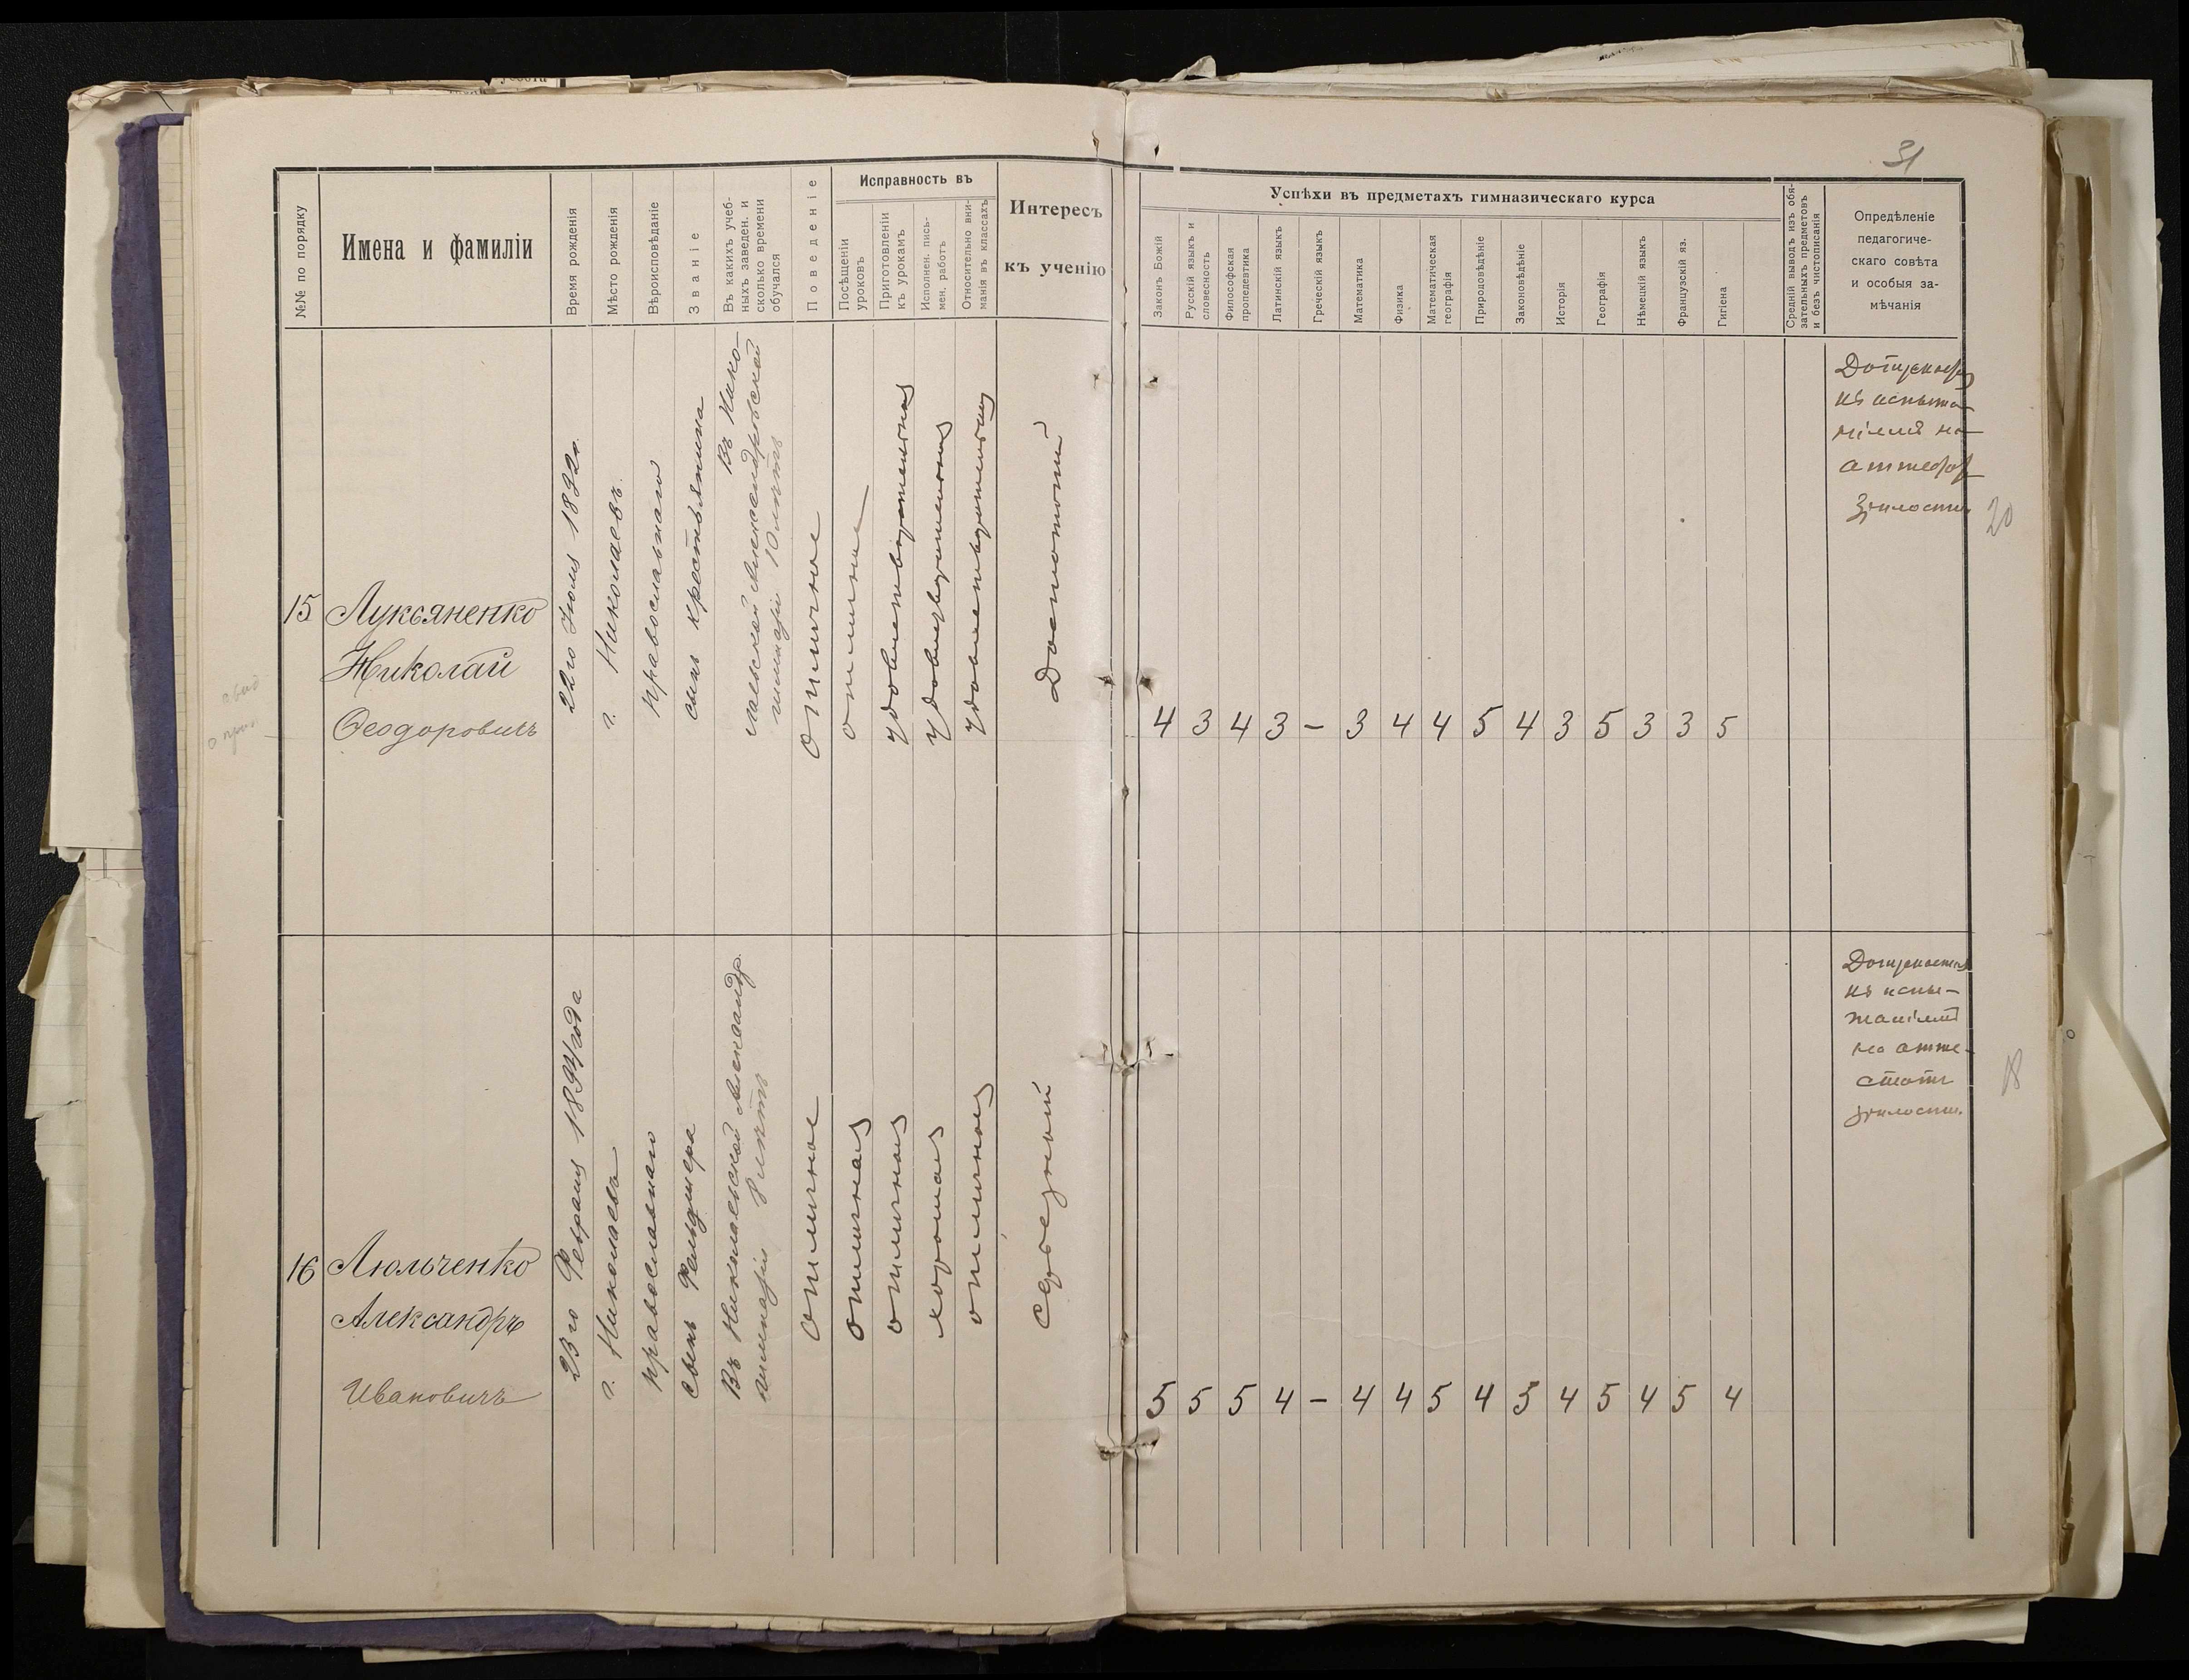 31
№№ по порядку
Имена и фамиліи
Время рожденія
Мѣсто рожденія
Вѣроисповѣданіе
Званіе
Въ какихъ учеб-
ныхъ заведен. и
сколько времени
обучался
Поведеніе
Исправность въ
Посѣщеніи
уроковъ
Приготовленіи
къ урокамъ
Исполнен. пись-
мен. работъ
Относительно вни-
манія въ классахъ
Интересъ
къ ученію
Успѣхи въ предметахъ гимназическаго курса
Законъ Божій
Русскій языкъ и
словесность
Философская
пропедевтика
Латинскій языкъ
Греческій языкъ
Математика
Физика
Математическая
географія
Природовѣдѣніе
Законовѣдѣніе
Исторія
Географія
Нѣмецкій языкъ
Французскій яз.
Гигіена
Средній выводъ изъ обя-
зательныхъ предметовъ
и безъ чистописанія
Опредѣленіе
педагогиче-
скаго совѣта
и особыя за-
мѣчанія
15
Лукьяненко
Николай
Ѳеодоровичъ
22го Іюля 1892г.
г. Николаевъ.
православнаго
сынъ крестьянина
Въ Нико-
лаевской Александровской
гимназіи 10 лѣтъ
отличное
отличное
удовлетворительная
удовлетворительная
удовлетворительное
Достаточный
4 3 4 3 – 3 4 4 5 4 3 5 3 3 5
Допускается
къ испыта-
ніямъ на
аттестатъ
зрѣлости.
20
16
Люльченко
Александръ
Ивановичъ
23го Февраля 1894 года
г. Николаевъ
православнаго
сынъ Фельдшера
Въ Николаевской Александр.
гимназіи 8 лѣтъ
отличное
отличная
отличная
хорошая
отличное
серьезный
5 5 5 4 – 4 4 5 4 5 4 5 4 5 4
Допускается
къ испы-
таніямъ
на атте-
статъ
зрѣлости.
18